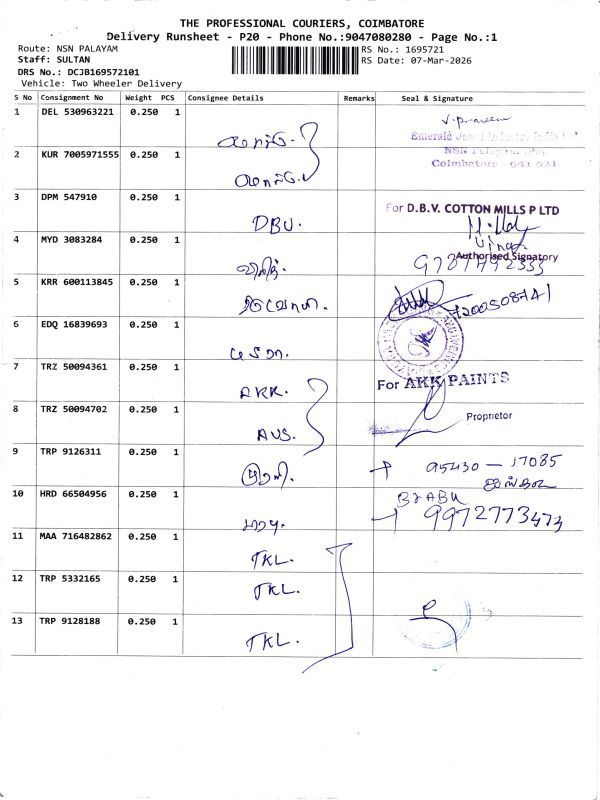 THE PROFESSIONAL COURIERS, COIMBATORE
Delivery Runsheet - P20 - Phone No.:9047080280 - Page No.:1
Route: NSN PALAYAM
Staff: SULTAN
DRS No.: DCJB169572101
Vehicle: Two Wheeler Delivery
RS No.: 1695721
RS Date: 07-Mar-2026
S No Consignment No Weight PCS Consignee Details Remarks Seal & Signature
1 DEL 530963221 0.250 1
V. Praveen
Emerald Jewel Industry India Ltd
NSN Palayam (Po),
Coimbatore - 641 031
2 KUR 7005971555 0.250 1
3 DPM 547910 0.250 1 DBV.
For D.B.V. COTTON MILLS P LTD
Authorised Signatory
4 MYD 3083284 0.250 1
5 KRR 600113845 0.250 1
7200508741
6 EDQ 16839693 0.250 1
7 TRZ 50094361 0.250 1 AKK.
For AKK PAINTS
8 TRZ 50094702 0.250 1 AVS.
Proprietor
9 TRP 9126311 0.250 1
95430 - 17085
10 HRD 66504956 0.250 1
BJABU
9972773473
11 MAA 716482862 0.250 1 TKL.
12 TRP 5332165 0.250 1 TKL.
13 TRP 9128188 0.250 1 TKL.